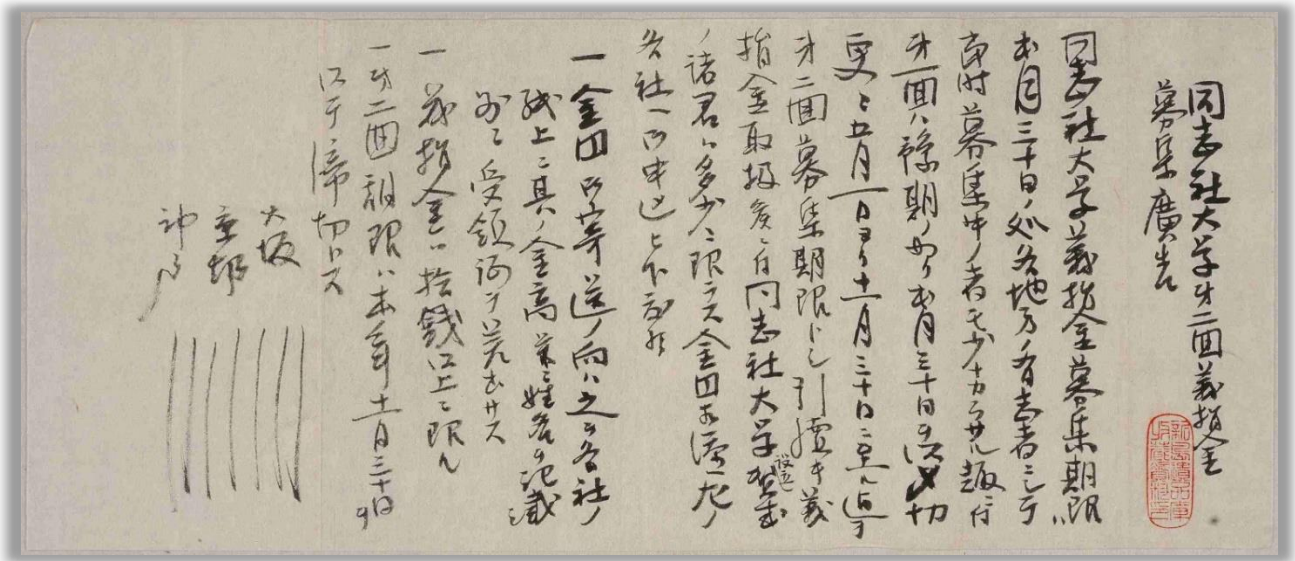 同志社大学才二回義捐金
募集廣告
同志社大学義捐金募集期限ハ
本月三十日ノ処各地方ノ有志者ニシテ
当時募集中ノ者モ少ナカラサル趣ニ付
才一回ハ予期ノ如ク本月三十日ヲ〆切
更ニ五月一日ヨリ十一月三十日ニ至ル迠ヲ
才二回募集期限トシ引續キ義
捐金取扱候ニ付同志社大学設立賛成
ノ諸君ハ多少ニ限ラス金円御
各社ヘ御申込ヒ下
一金円御寄送ノ向ハ之ヲ各社ノ
紙上ニ其ノ金高並ニ姓名ヲ記載
別ニ受領証ヲ差出サス
一義捐金ハ拾銭以上ニ限ル
一才二回期限ハ本年十一月三十日ヲ
以テ締切トス
大坂
京都
神戸